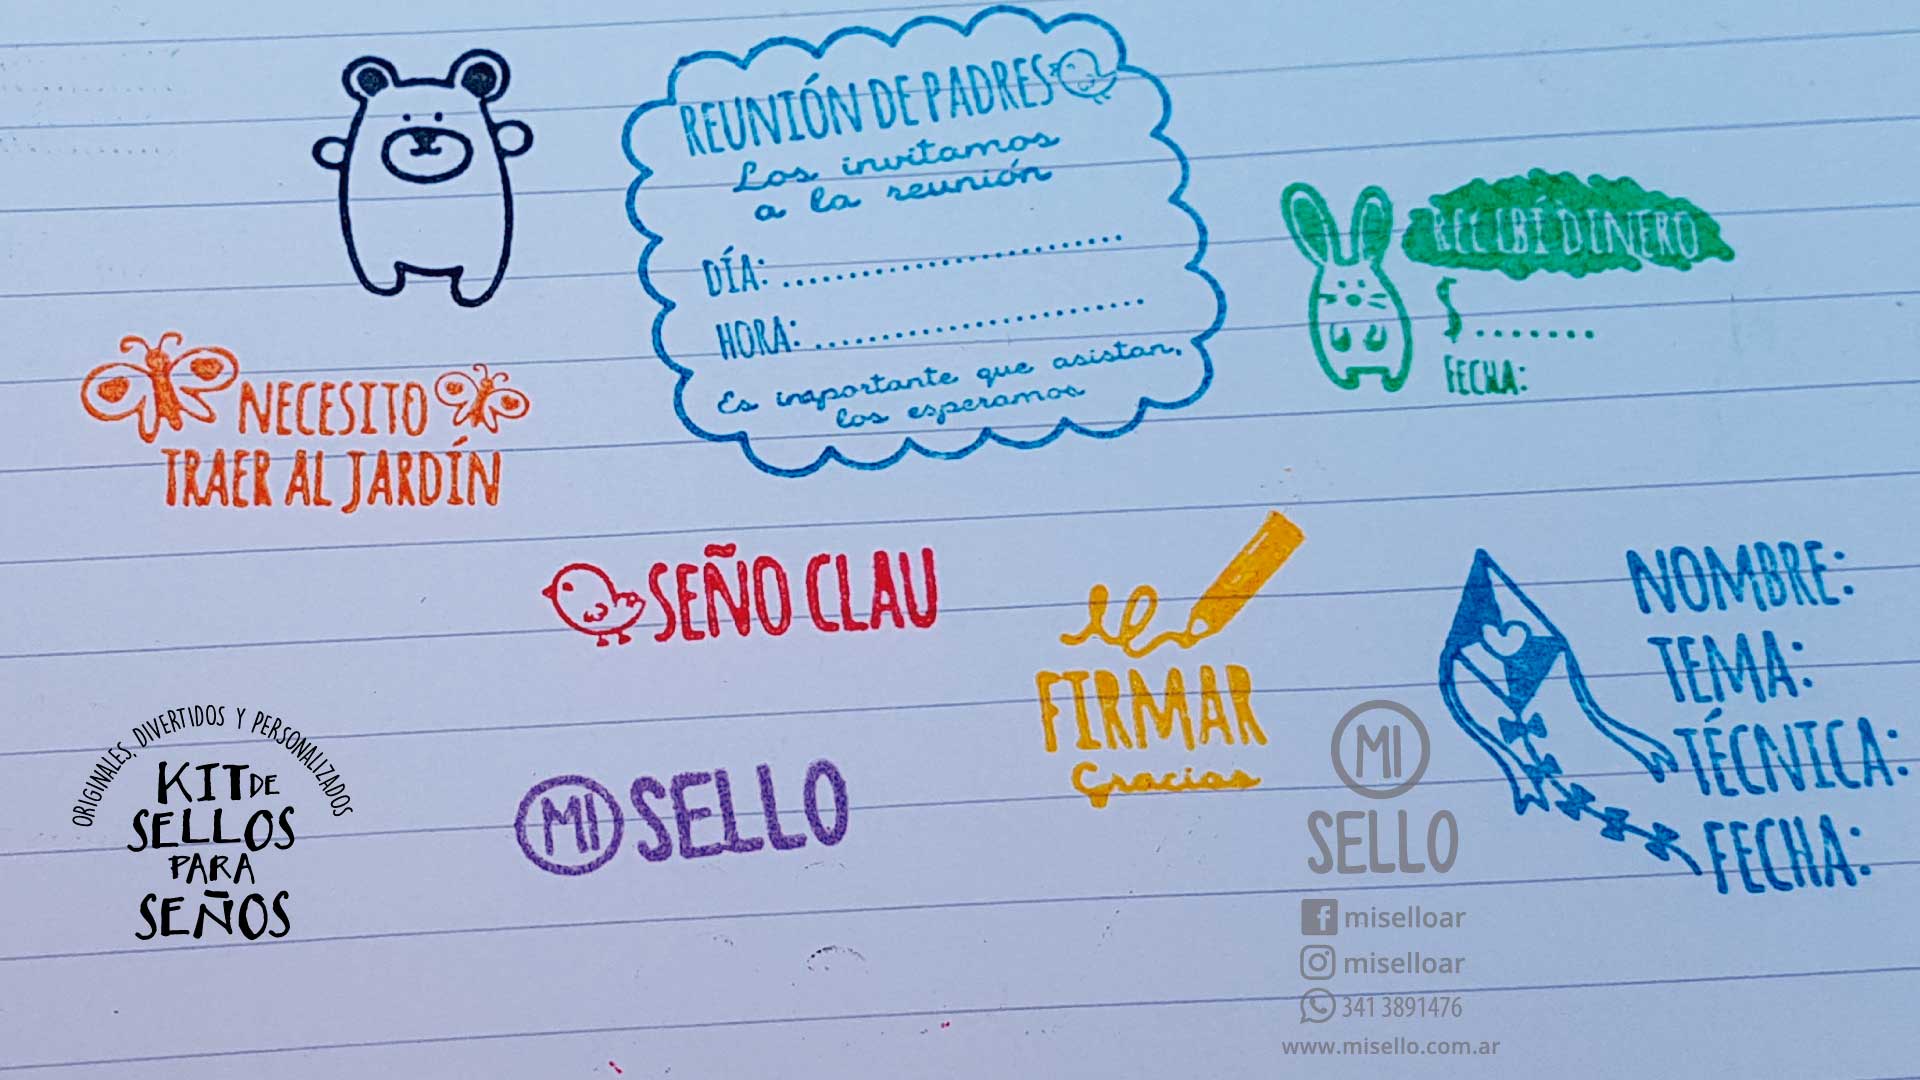 REUNIÓN DE PADRES
Los invitamos
a la reunión
DÍA: ................................
HORA: ................................
Es importante que asistan,
los esperamos
RECIBÍ DINERO
$.......
FECHA:
NECESITO
TRAER AL JARDÍN
SEÑO CLAU
FIRMAR
Gracias
NOMBRE:
TEMA:
TÉCNICA:
FECHA:
ORIGINALES, DIVERTIDOS Y PERSONALIZADOS
KIT DE
SELLOS
PARA
SEÑOS
MI SELLO
MI
SELLO
miselloar
miselloar
341 3891476
www.misello.com.ar